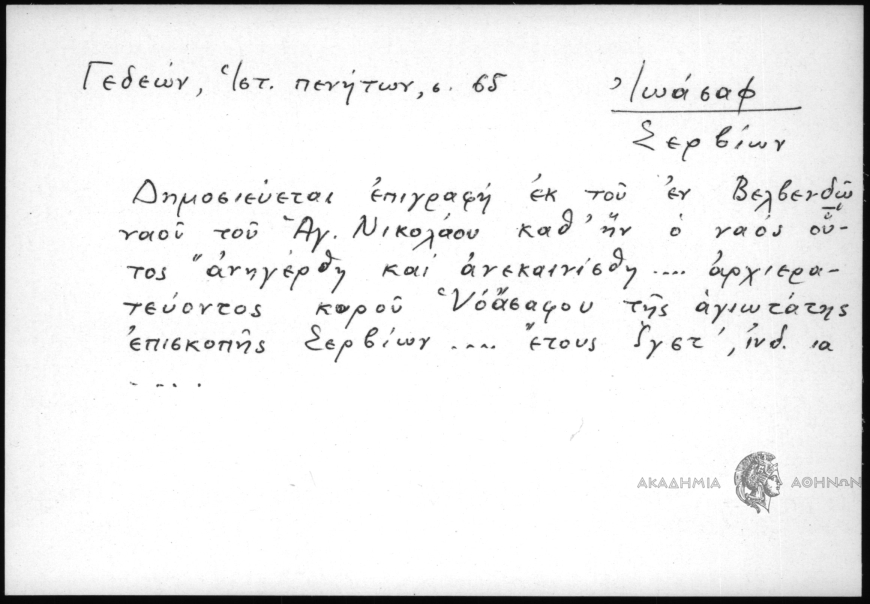 Γεδεών, Ἱστ. πενήτων, σ. 65
Ἰωάσαφ
Σερβίων
Δημοσιεύεται ἐπιγραφή ἐκ τοῦ ἐν Βελβενδῷ
ναοῦ τοῦ Ἁγ. Νικολάου καθ' ἥν ὁ ναός οὗ-
τος "ἀνηγέρθη καί ἀνεκαινίσθη .... ἀρχιερα-
τεύοντος κυροῦ τῆς ἁγιωτάτης
ἐπισκοπῆς Σερβίων .... ἔτους ἰνδ. ια
....
ΑΚΑΔΗΜΙΑ ΑΘΗΝΩΝ